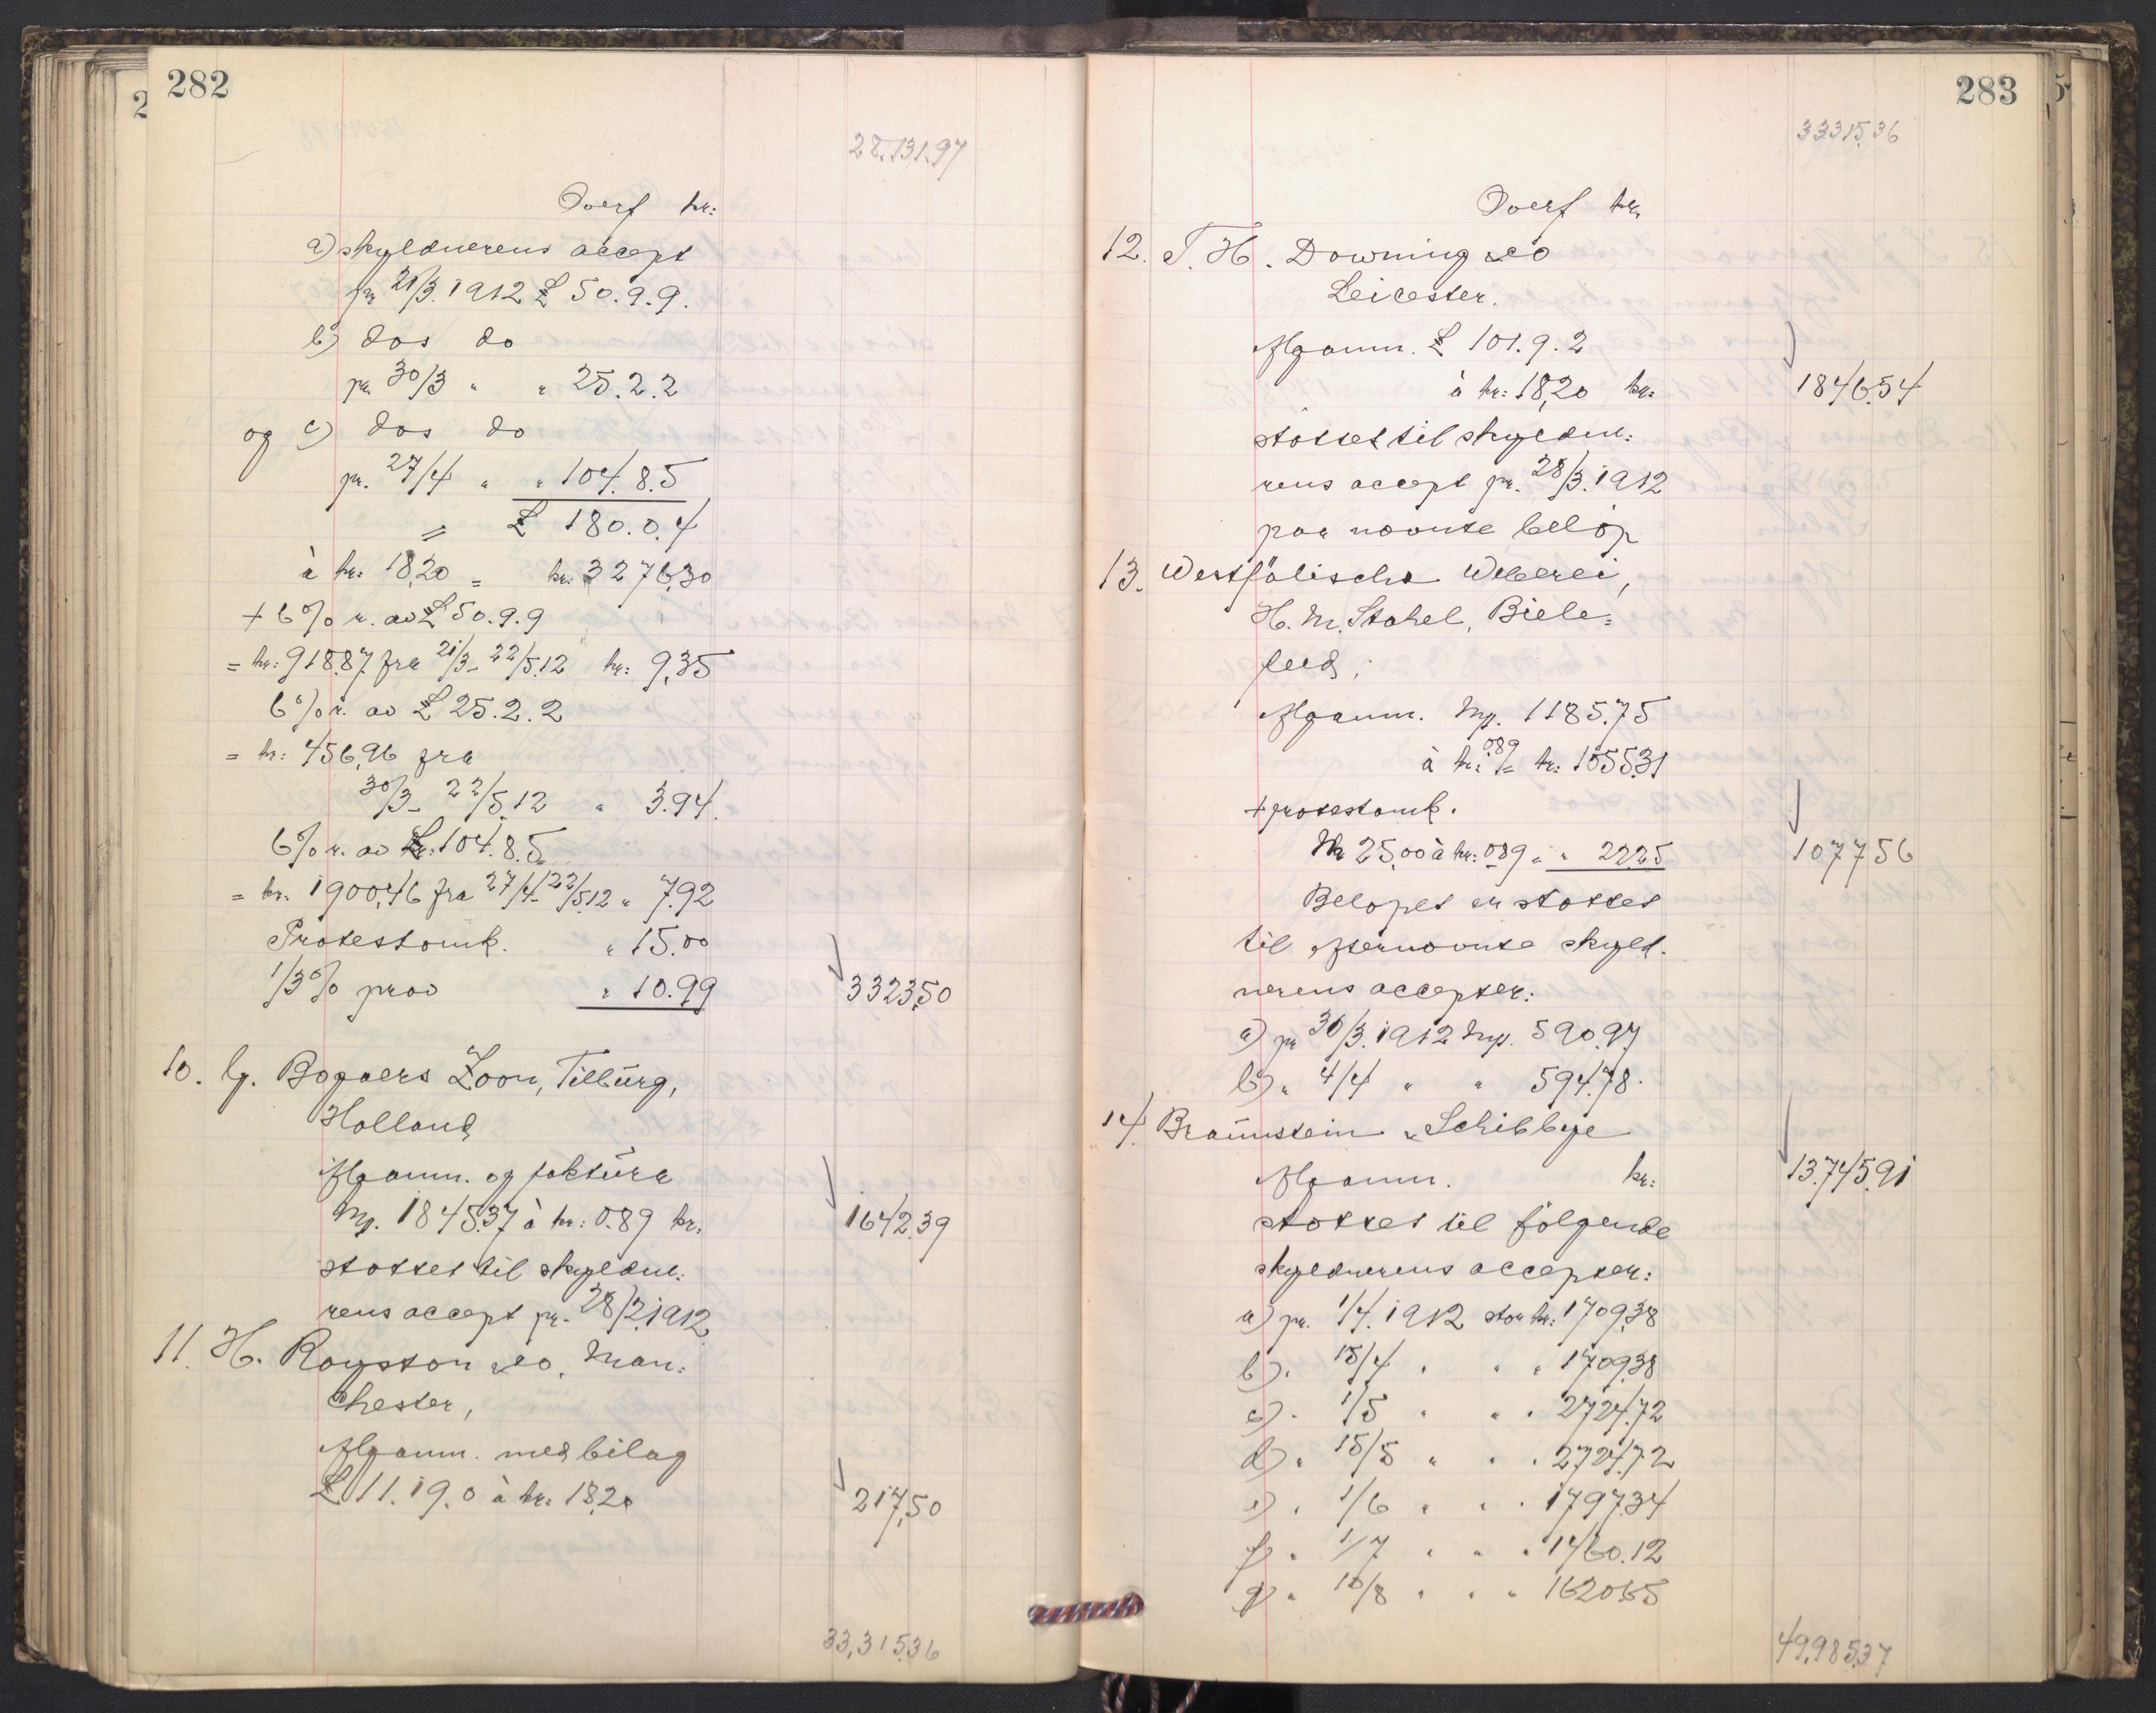 282
28.131.97
Overf kr:
a) skyldnerens accept
pr 21/3. 1912 £ 50.9.9.
b) dos do
pr 30/3 " " 25.2.2
og c) dos do
pr. 27/4 " " 104.8.5
= £ 180.0.4
à kr. 18,20 = kr. 3276,30
+ 6% r. av £ 50.9.9
= kr: 918.87 fra 21/3 - 22/5.12 kr: 9,35
6% r. av £ 25.2.2
= kr: 456,96 fra
30/3 - 22/5.12 " 3.94.
6% r. av £ 104.8.5
= kr. 1900,46 fra 27/4 - 22/5.12 " 7.92
Protestomk. " 15.00
1/3% prov " 10.99 3323,50
10. G. Bogaers Zoon, Tilburg,
Holland
Mganm. og faktura
Mp. 1845.37 à kr: 0.89 kr. 1642.39
støttet til skyldne:
rens accept pr. 28/2 1912
11. H. Royston & Co, Man:
chester,
Mganm. med bilag
£ 11.19.0 à kr: 18,20 217,50
33,315.36
283
33315,36
Overf kr.
12. T. H. Downing & Co
Leicester.
Mganm. £ 101.9.2
à kr: 18,20 kr: 1846.54
støttet til skyldne:
rens accept pr. 28/3. 1912
paa nævnte beløp
13. Westfälische Weberei,
H. M. Stahel, Biele:
feld,
Mganm. Mp. 1185.75
à kr: 089 = kr: 1055.31
+ protestomk.
Mk 25,00 à kr: 089 " " 22.25 1077.56
Beløpet er støttet
til efternævnte skyld-
nerens accepter:
a) pr 30/3. 1912 Mp. 590.97
b) " 4/4 " " 594.78.
14. Braunstein & Schibbye
Mganm. kr: 13.745.91
støttet til følgende
skyldnerens accepter:
a) pr. 1/4. 1912 stor kr: 1709,38
b) " 15/4 " " " 1709.38
c) " 1/5 " " " 2724.72
d) " 15/5 " " " 2724.72
e) " 1/6 " " " 1797.34
f) " 1/7 " " " 1460.12
g) " 10/8 " " " 1620.65
49,985.37